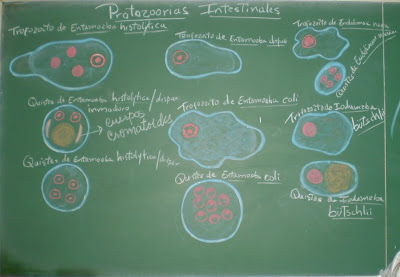 Protozoorias Intestinales
Trofozoito de Entamoeba histolytica
Trofozoito de Entamoeba dispar
Trofozoito de Endolimax nana
Quiste de Endolimax nana
Quistes de Entamoeba histolytica/dispar
inmaduro
cuerpos
cromatoidales
Trofozoito de Entamoeba coli
Trofozoito de Iodamoeba
bütschlii
Quistes de Entamoeba histolytica/dispar
Quiste de Entamoeba coli
Quistes de Iodamoeba
bütschlii